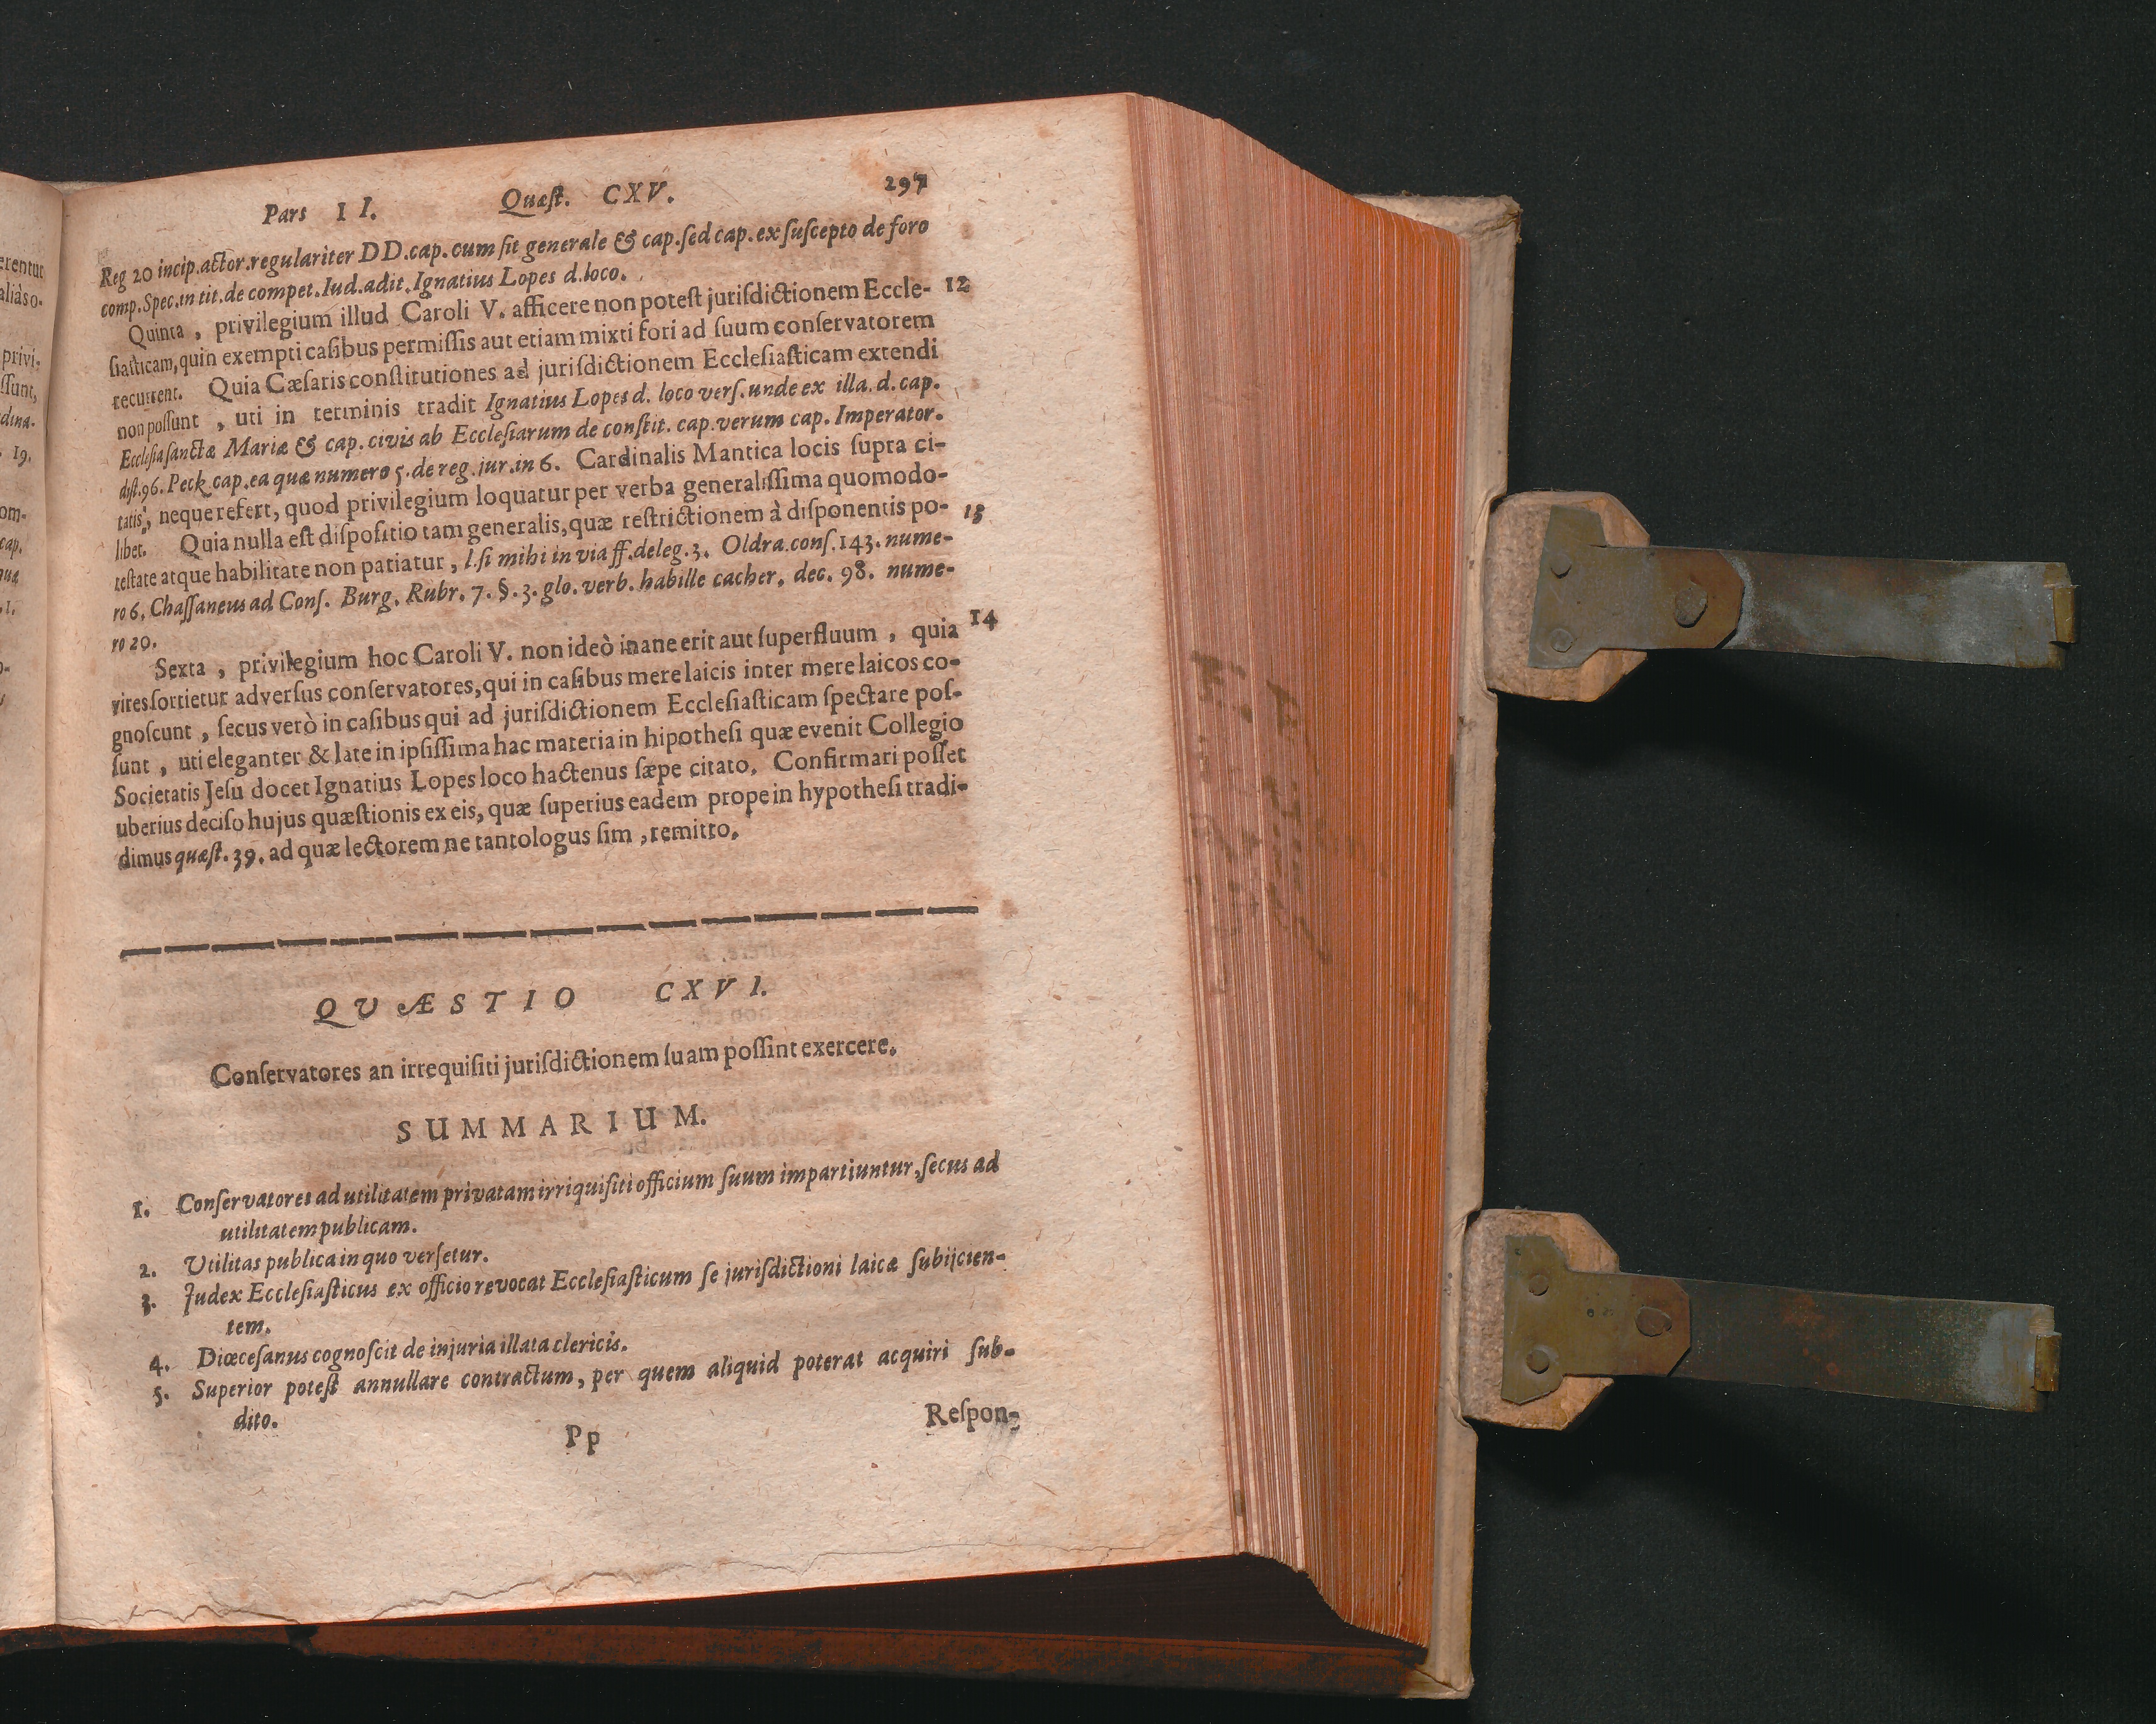 Pars II. Quæst. CXV. 297
Reg 20 incip.actor.regulariter DD.cap.cum sit generale & cap.sed cap.ex suscepto de foro
comp.Spec.in tit.de compet.Iud.adit.Ignatius Lopes d.loco.
Quinta, privilegium illud Caroli V. afficere non potest jurisdictionem Eccle- 12
siasticam, quin exempti casibus permissis aut etiam mixti fori ad suum conservatorem
recurrent. Quia Cæsaris constitutiones ad jurisdictionem Ecclesiasticam extendi
non possunt, uti in terminis tradit Ignatius Lopes d. loco vers. unde ex illa. d. cap.
Ecclesia sanctæ Mariæ & cap. civis ab Ecclesiarum de constit. cap.verum cap. Imperator.
dist.96. Peck cap.ea quæ numero 5.de reg.jur.in 6. Cardinalis Mantica locis supra ci-
tatis, neque refert, quod privilegium loquatur per verba generalissima quomodo-
libet. Quia nulla est dispositio tam generalis, quæ restrictionem à disponentis po- 13
testate atque habilitate non patiatur, l.si mihi in via ff.deleg.3. Oldra.cons.143. nume-
ro 6. Chassaneus ad Cons. Burg. Rubr. 7. §. 3. glo. verb. habille cacher, dec. 98. nume-
ro 20.
Sexta, privilegium hoc Caroli V. non ideò inane erit aut superfluum, quia 14
vires sortietur adversus conservatores, qui in casibus mere laicis inter mere laicos co-
gnoscunt, secus verò in casibus qui ad jurisdictionem Ecclesiasticam spectare pos-
sunt, uti eleganter & late in ipsissima hac materia in hipothesi quæ evenit Collegio
Societatis Jesu docet Ignatius Lopes loco hactenus sæpe citato. Confirmari posset
uberius deciso hujus quæstionis ex eis, quæ superius eadem prope in hypothesi tradi-
dimus quæst. 39. ad quæ lectorem ne tantologus sim, remitto.
QUÆSTIO CXVI.
Conservatores an irrequisiti jurisdictionem suam possint exercere.
SUMMARIUM.
1. Conservatores ad utilitatem privatam irriquisiti officium suum impartiuntur, secus ad
utilitatem publicam.
2. Utilitas publica in quo versetur.
3. Judex Ecclesiasticus ex officio revocat Ecclesiasticum se jurisdictioni laicæ subijcien-
tem.
4. Diœcesanus cognoscit de injuria illata clericis.
5. Superior potest annullare contractum, per quem aliquid poterat acquiri sub-
dito.
Pp Respon-